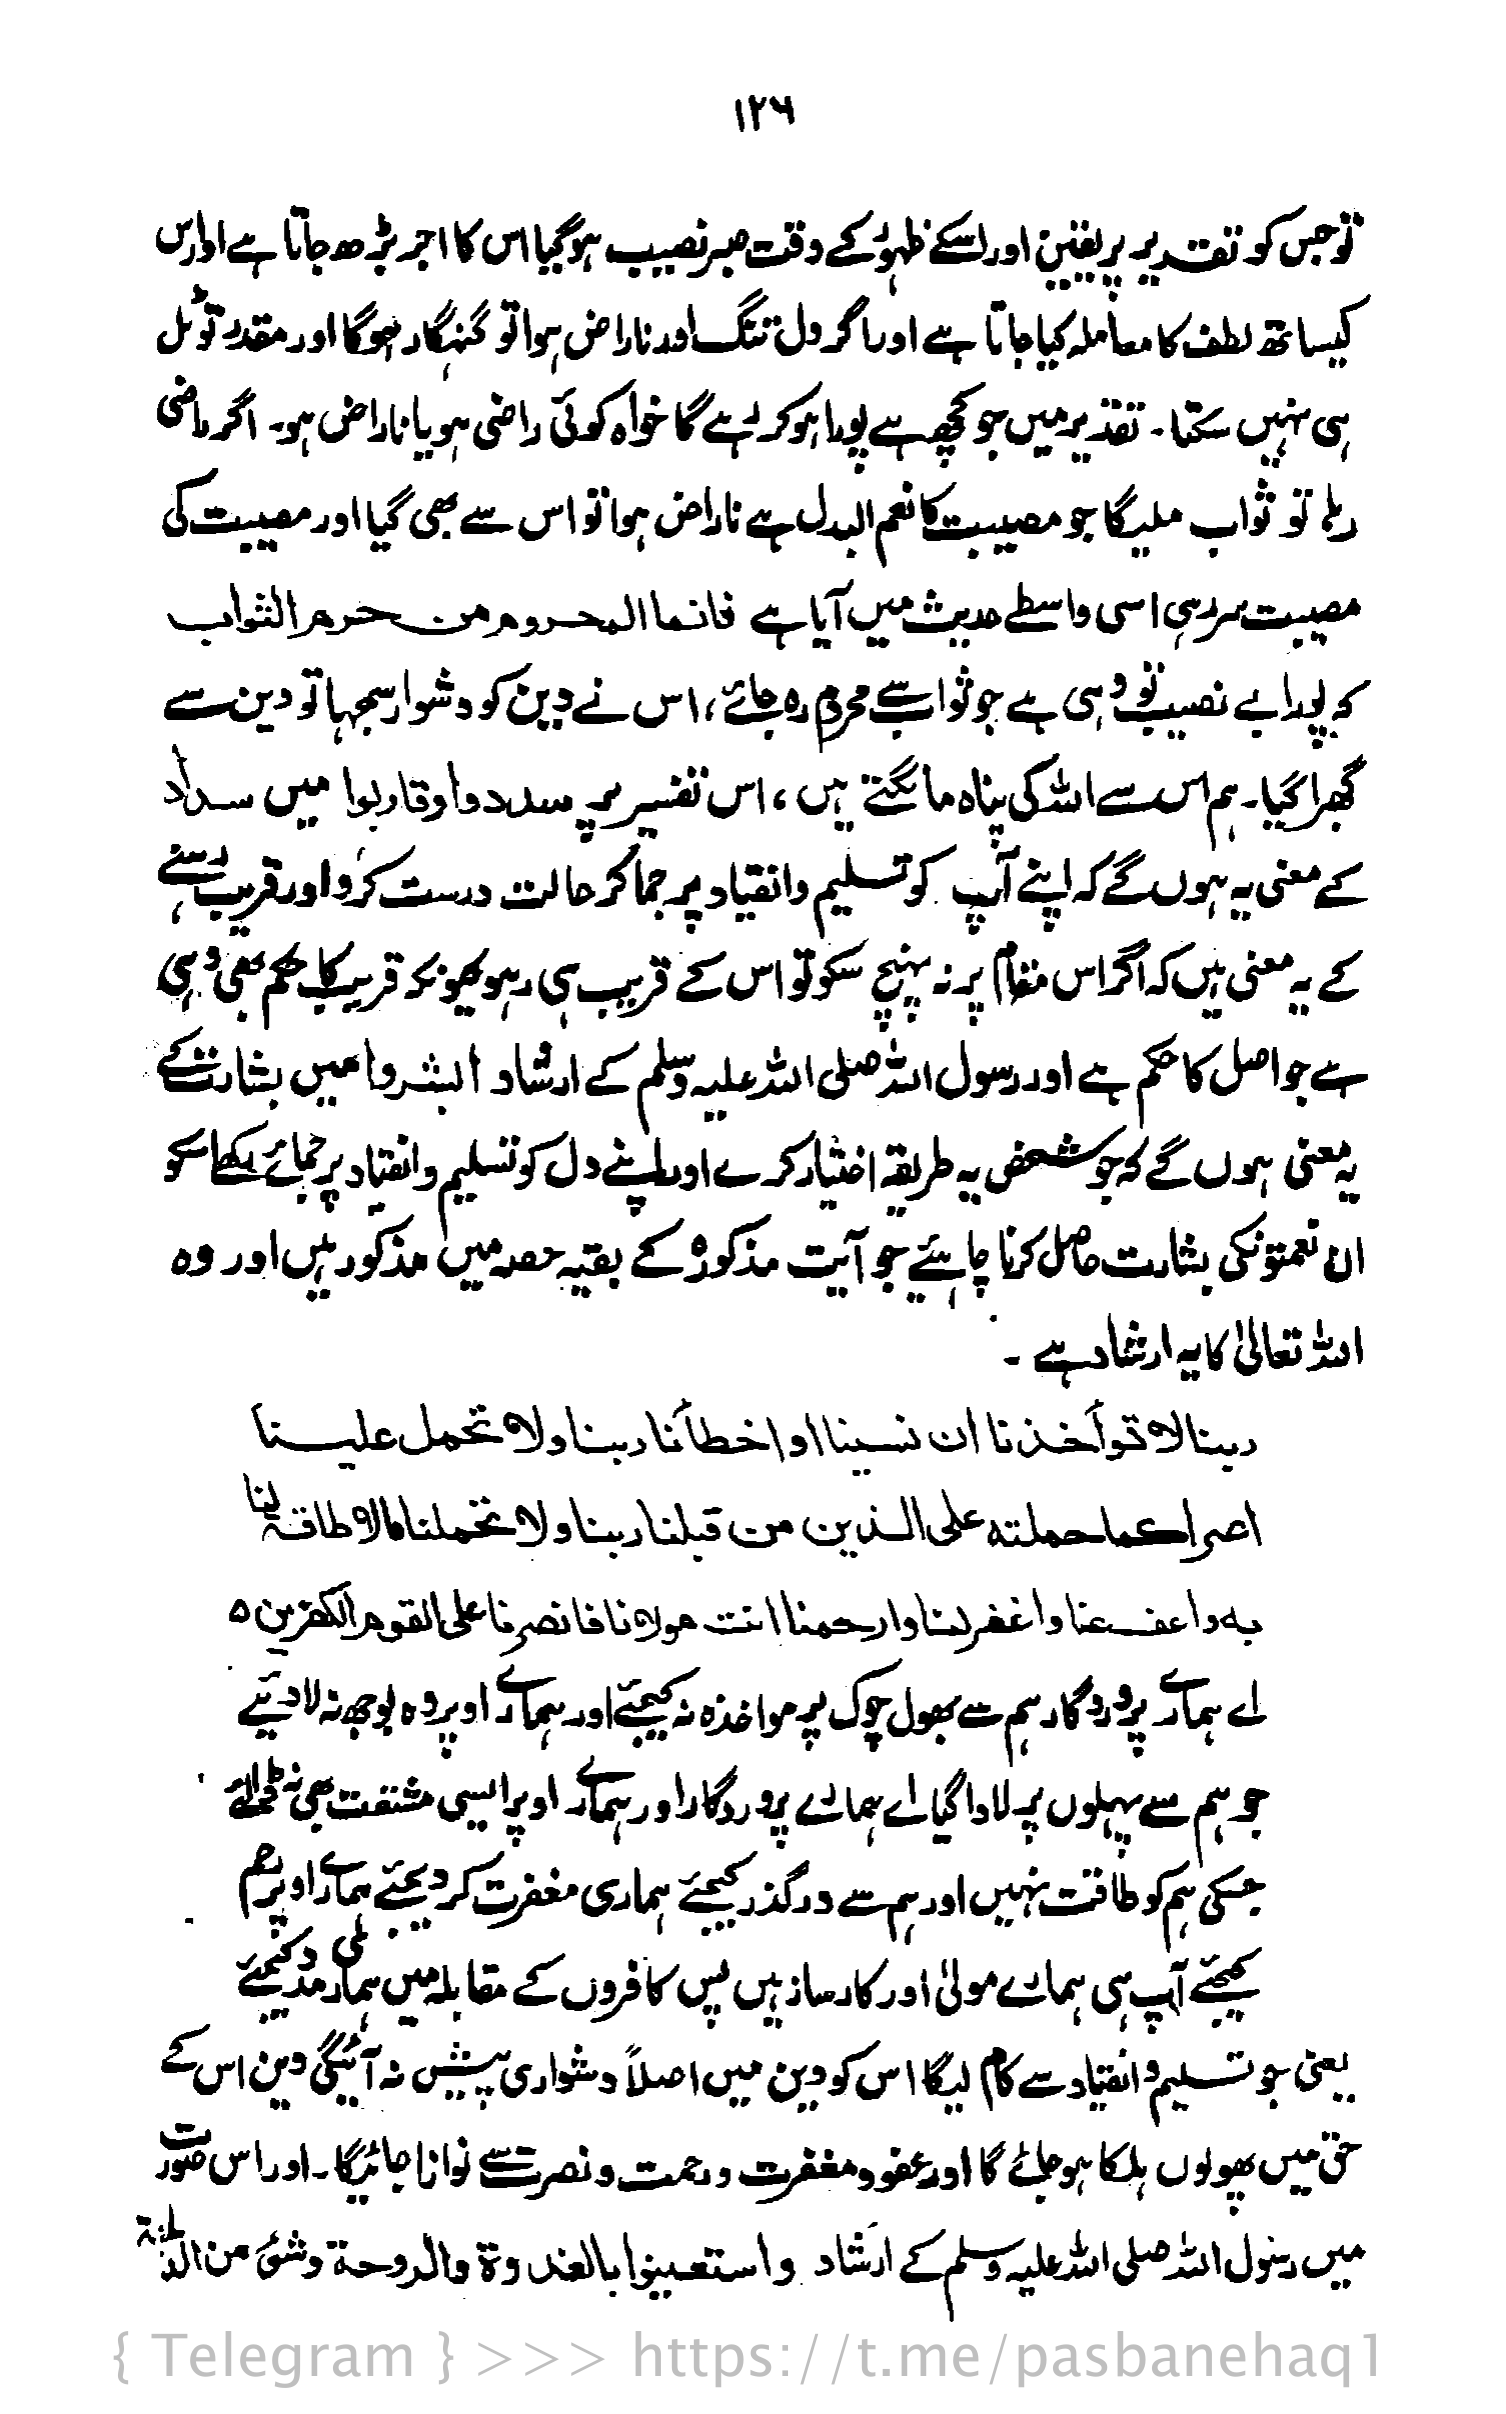 ۱۲۶
تو جس کو تقدیر پر یقین اور اسکے ظہور کے وقت صبر نصیب ہوگیا اس کا اجر بڑھ جاتا ہے اور اس
کیساتھ لطف کا معاملہ کیا جاتا ہے اور اگر دل تنگ اور ناراض ہوا تو گنہگار ہوگا اور مقدر تو ٹل
ہی نہیں سکتا۔ تقدیر میں جو کچھ ہے پورا ہو کر رہے گا خواہ کوئی راضی ہو یا ناراض ہو۔ اگر راضی
رہا تو ثواب ملیگا جو مصیبت کا نعم البدل ہے ناراض ہوا تو اس سے بھی گیا اور مصیبت کی
مصیبت سر رہی اسی واسطے حدیث میں آیا ہے فانما المحروم من حرم الثواب
کہ پورا بے نصیب تو وہی ہے جو ثواب سے محروم رہ جائے، اس نے دین کو دشوار سمجہا تو دین سے
گھبرا گیا۔ ہم اس سے اللہ کی پناہ مانگتے ہیں، اس تفسیر پر سددوا وقاربوا میں سداد
کے معنی یہ ہوں گے کہ اپنے آپ کو تسلیم وانقیاد پر جما کر حالت درست کرو اور قریب رہنے
کے یہ معنی ہیں کہ اگر اس مقام پر نہ پہنچ سکو تو اس کے قریب ہی رہو کیونکہ قریب کا حکم بھی وہی
ہے جو اصل کا حکم ہے اور رسول اللہ صلی اللہ علیہ وسلم کے ارشاد ابشروا میں بشارت کے
یہ معنی ہوں گے کہ جو شخص یہ طریقہ اختیار کرے اور اپنے دل کو تسلیم وانقیاد پر جمائے رکھے اسکو
ان نعمتونکی بشارت حاصل کرنا چاہئیے جو آیت مذکورہ کے بقیہ حصہ میں مذکور ہیں اور وہ
اللہ تعالیٰ کا یہ ارشاد ہے ۔
ربنا لا تؤاخذنا ان نسینا او اخطأنا ربنا ولا تحمل علینا
اصرا کما حملته علی الذین من قبلنا ربنا ولا تحملنا مالا طاقة لنا
به واعف عنا واغفر لنا وارحمنا انت مولانا فانصرنا علی القوم الکفرین ۵
اے ہمارے پروردگار ہم سے بھول چوک پر مواخذہ نہ کیجئے اور ہمارے اوپر وہ بوجھ نہ لادئیے
جو ہم سے پہلوں پر لادا گیا اے ہمارے پروردگار اور ہمارے اوپر ایسی مشقت بھی نہ ڈالئے
جسکی ہم کو طاقت نہیں اور ہم سے درگذر کیجئے ہماری مغفرت کر دیجئے ہمارے اوپر رحم
کیجئے آپ ہی ہمارے مولیٰ اور کارساز ہیں پس کافروں کے مقابلہ میں ہماری مدد کیجئے
یعنی جو تسلیم وانقیاد سے کام لیگا اس کو دین میں اصلاً دشواری پیش نہ آئیگی دین اس کے
حق میں پھولوں ہلکا ہوجائے گا اور عفو ومغفرت ورحمت ونصرت سے نوازا جائیگا۔ اور اس صورت
میں رسول اللہ صلی اللہ علیہ وسلم کے ارشاد واستعینوا بالغدوة والروحة وشئ من الدلجة
{ Telegram } >>> https://t.me/pasbanehaq1